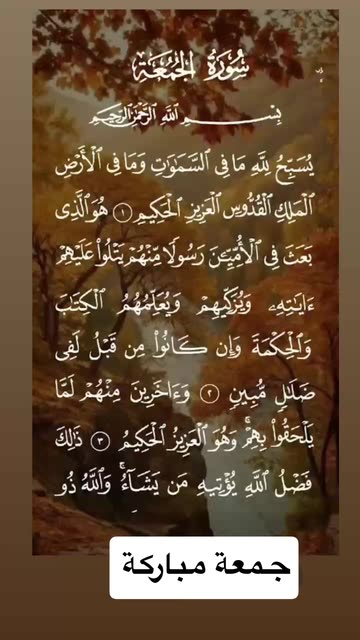 سُورَةُ الجُمُعَةِ
بِسْمِ اللَّهِ الرَّحْمَٰنِ الرَّحِيمِ
يُسَبِّحُ لِلَّهِ مَا فِي السَّمَٰوَٰتِ وَمَا فِي الْأَرْضِ
الْمَلِكِ الْقُدُّوسِ الْعَزِيزِ الْحَكِيمِ ١ هُوَ الَّذِي
بَعَثَ فِي الْأُمِّيِّـۧنَ رَسُولًا مِّنْهُمْ يَتْلُواْ عَلَيْهِمْ
ءَايَٰتِهِۦ وَيُزَكِّيهِمْ وَيُعَلِّمُهُمُ الْكِتَٰبَ
وَالْحِكْمَةَ وَإِن كَانُواْ مِن قَبْلُ لَفِي
ضَلَٰلٍ مُّبِينٍ ٢ وَءَاخَرِينَ مِنْهُمْ لَمَّا
يَلْحَقُواْ بِهِمْ ۚ وَهُوَ الْعَزِيزُ الْحَكِيمُ ٣ ذَٰلِكَ
فَضْلُ اللَّهِ يُؤْتِيهِ مَن يَشَآءُ ۚ وَاللَّهُ ذُو
جمعة مباركة